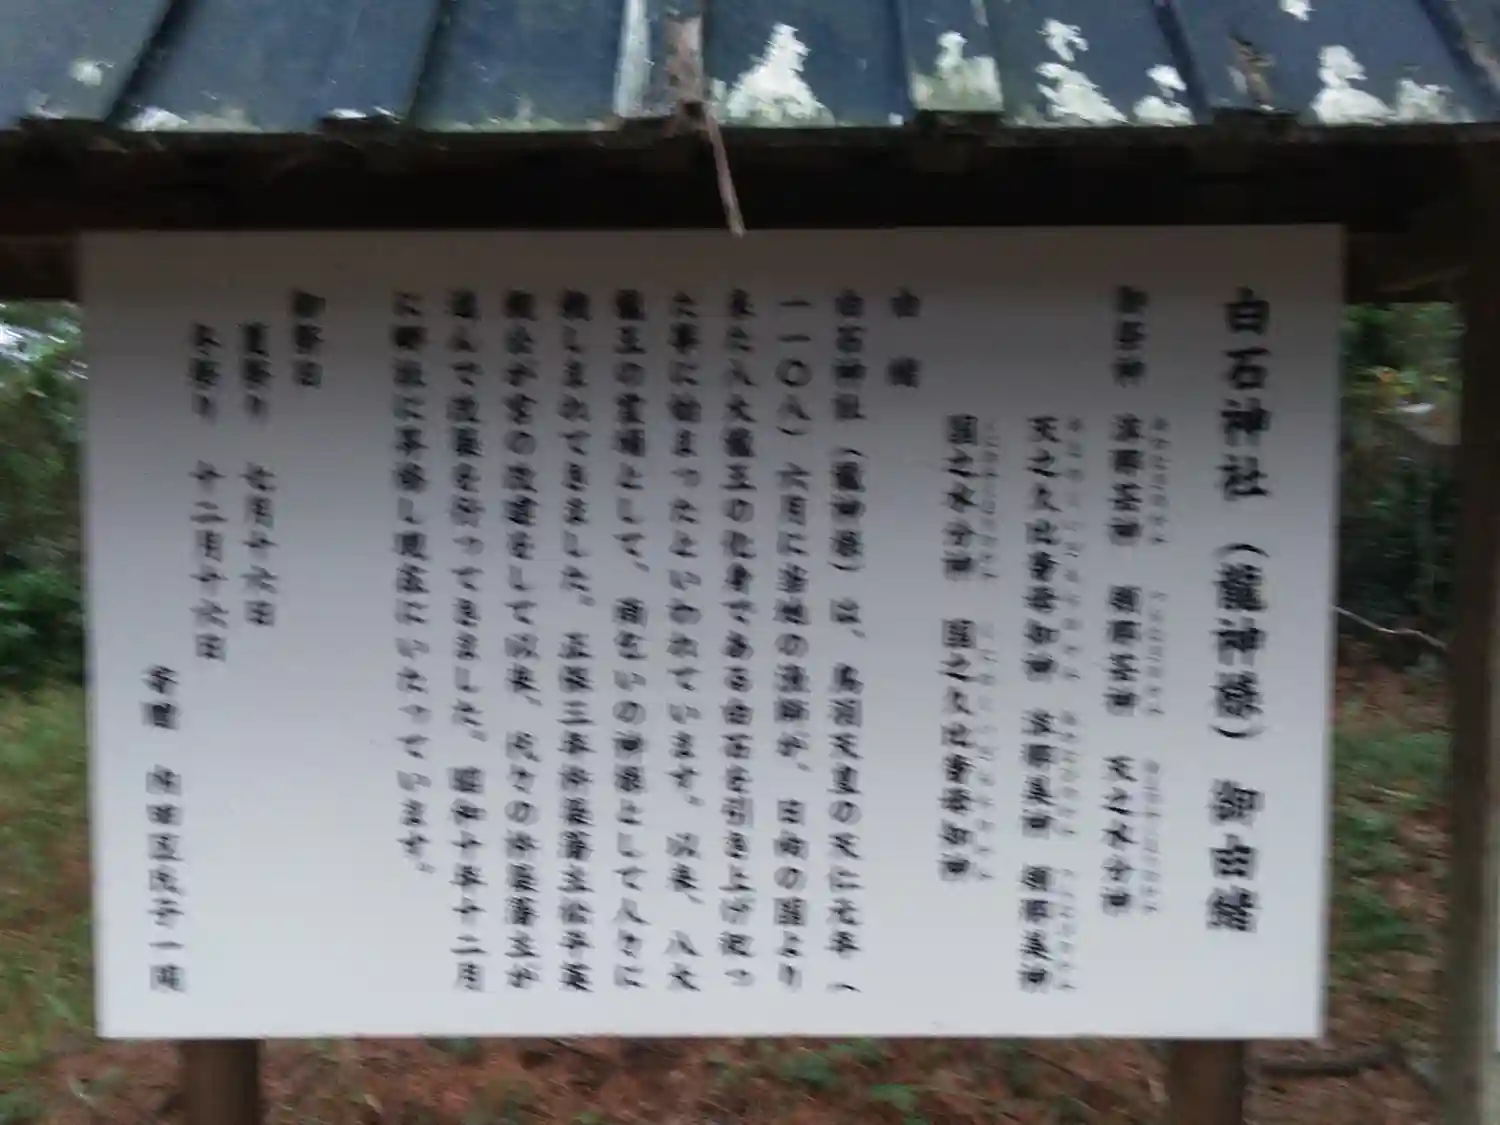 白石神社（龍神様）御由緒
御祭神 沫那芸神 頬那芸神 天之水分神
天之久比奢母知神 沫那美神 頬那美神
国之水分神 国之久比奢母知神
由緒
白石神社（龍神様）は、鳥羽天皇の天仁元年（
一一〇八）六月に当地の漁師が、日向の国より
来た八大龍王の化身である白石を引き上げ祀っ
た事に始まったといわれています。以来、八大
龍王の霊場として、雨乞いの神様として人々に
親しまれてきました。正保三年杵築藩主松平英
親公が宮の改造をして以来、代々の杵築藩主が
進んで改築を行ってきました。昭和十年十二月
に郷社に昇格し現在にいたっています。
御祭日
夏祭り 七月十六日
冬祭り 十二月十六日
寄贈 区氏子一同